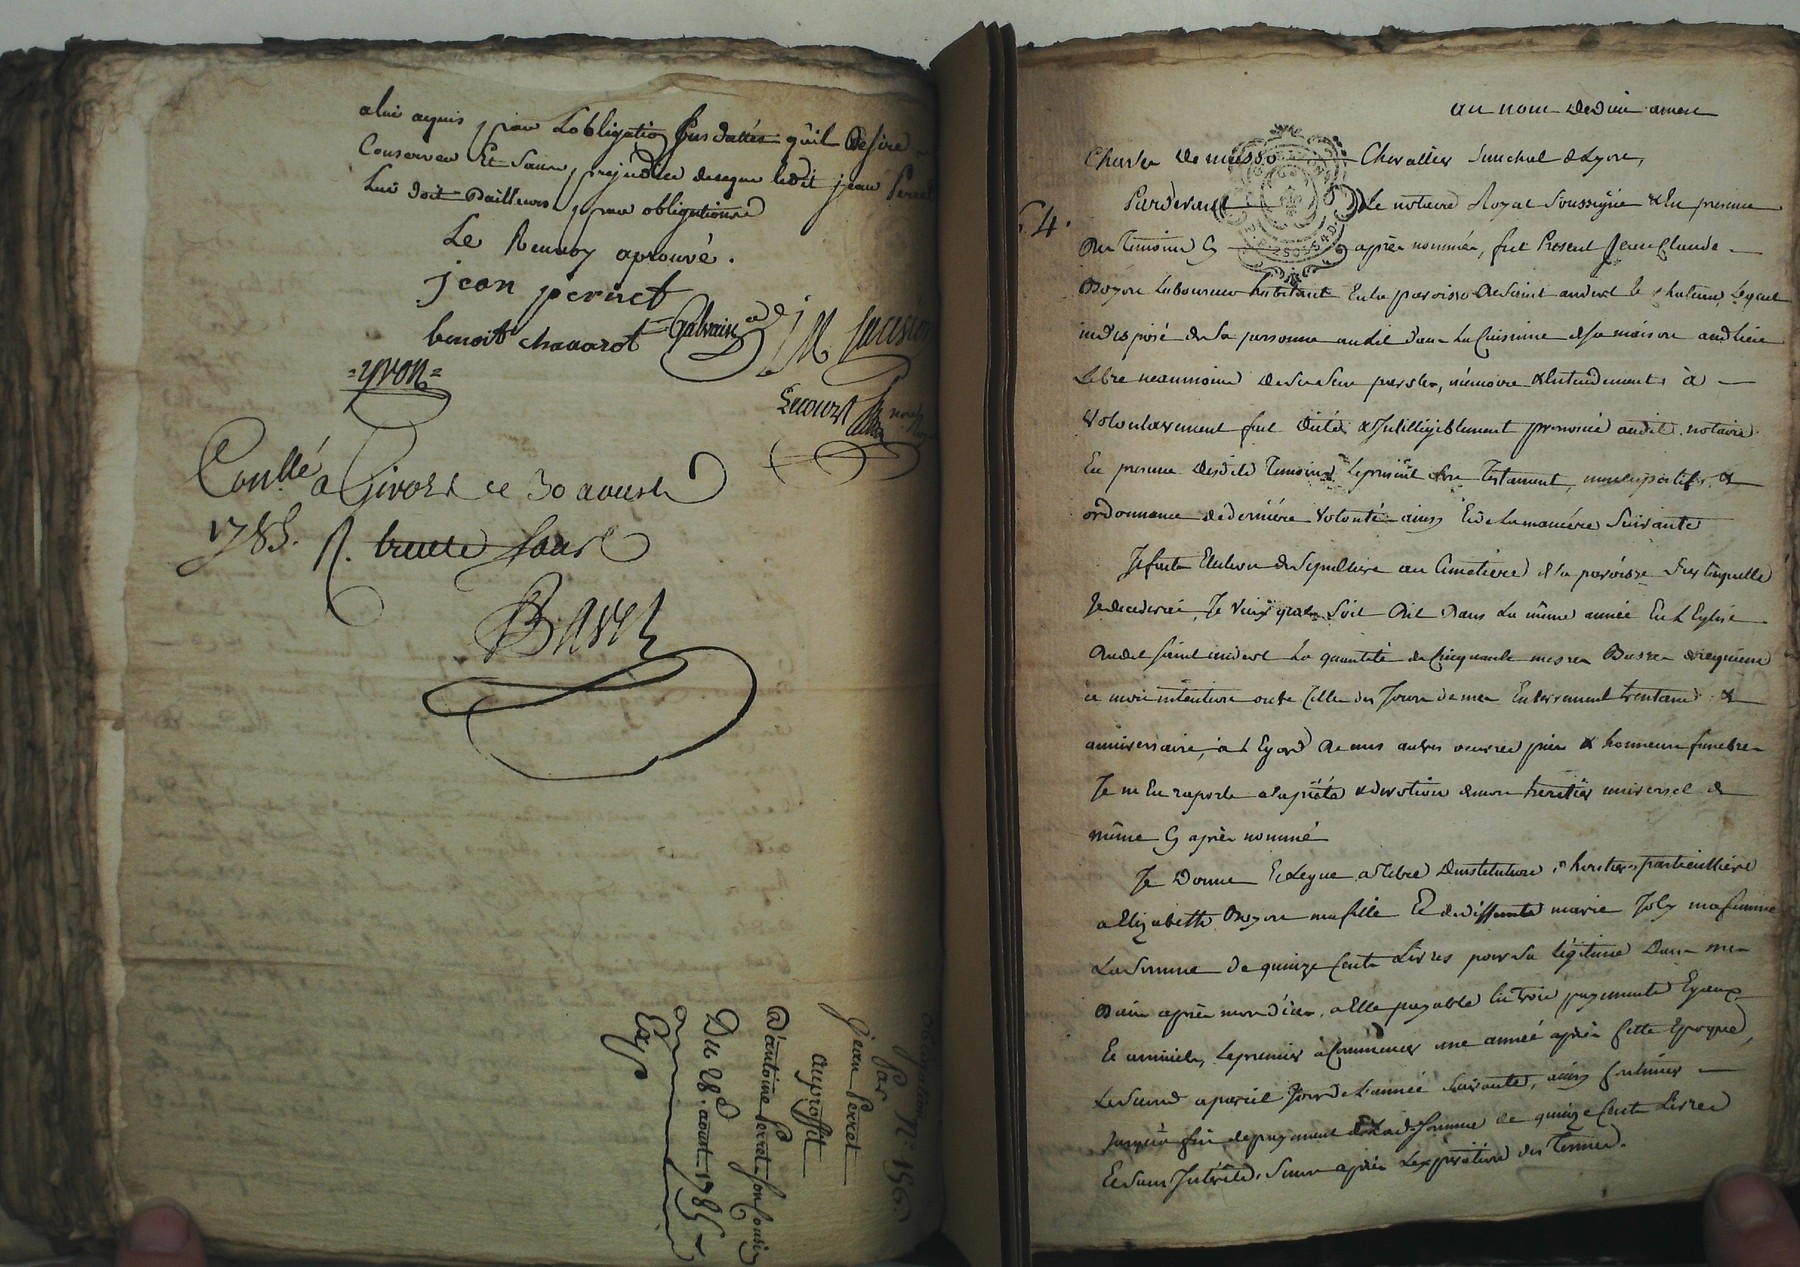 a lui acquis par Lobligation susdattée qu'il desire
Conserver Et Sans prejudice de ce que ledit jean Perret
Lui doit d'ailleurs par obligations
Le Renvoy aprouvé.
jean perret
benoit chavarot Galvain
yvon
Lecourt
Conllé a Givors ce 30 aoust
1785. R. trente sous
Bavet
obligation N.° 156.
Par
Jean Perret
au proffit
d'antoine Perret son cousin
Du 28.d aout 1785
Exp
au nom de dieu amen
Charles de masso Chevalier Senechal de Lyon,
64.
Pardevant Le notaire Royal Soussigné & En presence
Des Temoins Cy après nommés, fut Present Jean Claude
Boyon Laboureur habitant En la paroisse de Saint andéol le chateau, Lequel
indisposé de Sa personne au lit dans La Cuisine de Sa maison aud. lieu
Libre neanmoins de Ses Sens parole, mémoire & Entendement, a
volontairement fait dicté & Intelligiblement prononcé audit notaire
En presence desdits Temoins Le present Son Testament nuncupatif &
ordonnance de derniére volonté ainsy Et de La maniére Suivante
Je fais Election de Sepulture au Cimetiere de la paroisse Sur laquelle
Je decederai, Je veux qu'il Soit dit Dans La même année En L'Eglise
dudit Saint andéol La quantité de Cinquante messes Basses de requiem
a mon intention outre Celles des Jours de mes Enterrement trentaine &
anniversaire, à L'Egard de mes autres oeuvres pies & honneurs funebres
Je m'En raporte a la piété & devotion de mon heritier universel de
même Cy après nommé
Je Donne Et Legue a Titre D'institution d'heritiere particulliére
a Elizabeth Boyon ma fille Et de deffunte marie Joly ma femme
La Somme de quinze Cents Livres pour Sa légitime Dans mes
Biens après mon décès, a Elle payable En trois payements Egaux
Et annuels, Le premier a Commencer une année après Cette Epoque,
Le Second a pareil Jour de L'année Suivante, ainsy Continuer
Jusqu'à fin de payement de Lad. Somme de quinze Cents Livres
Et Sans Intérêts, Sinon après L'expiration des Termes.